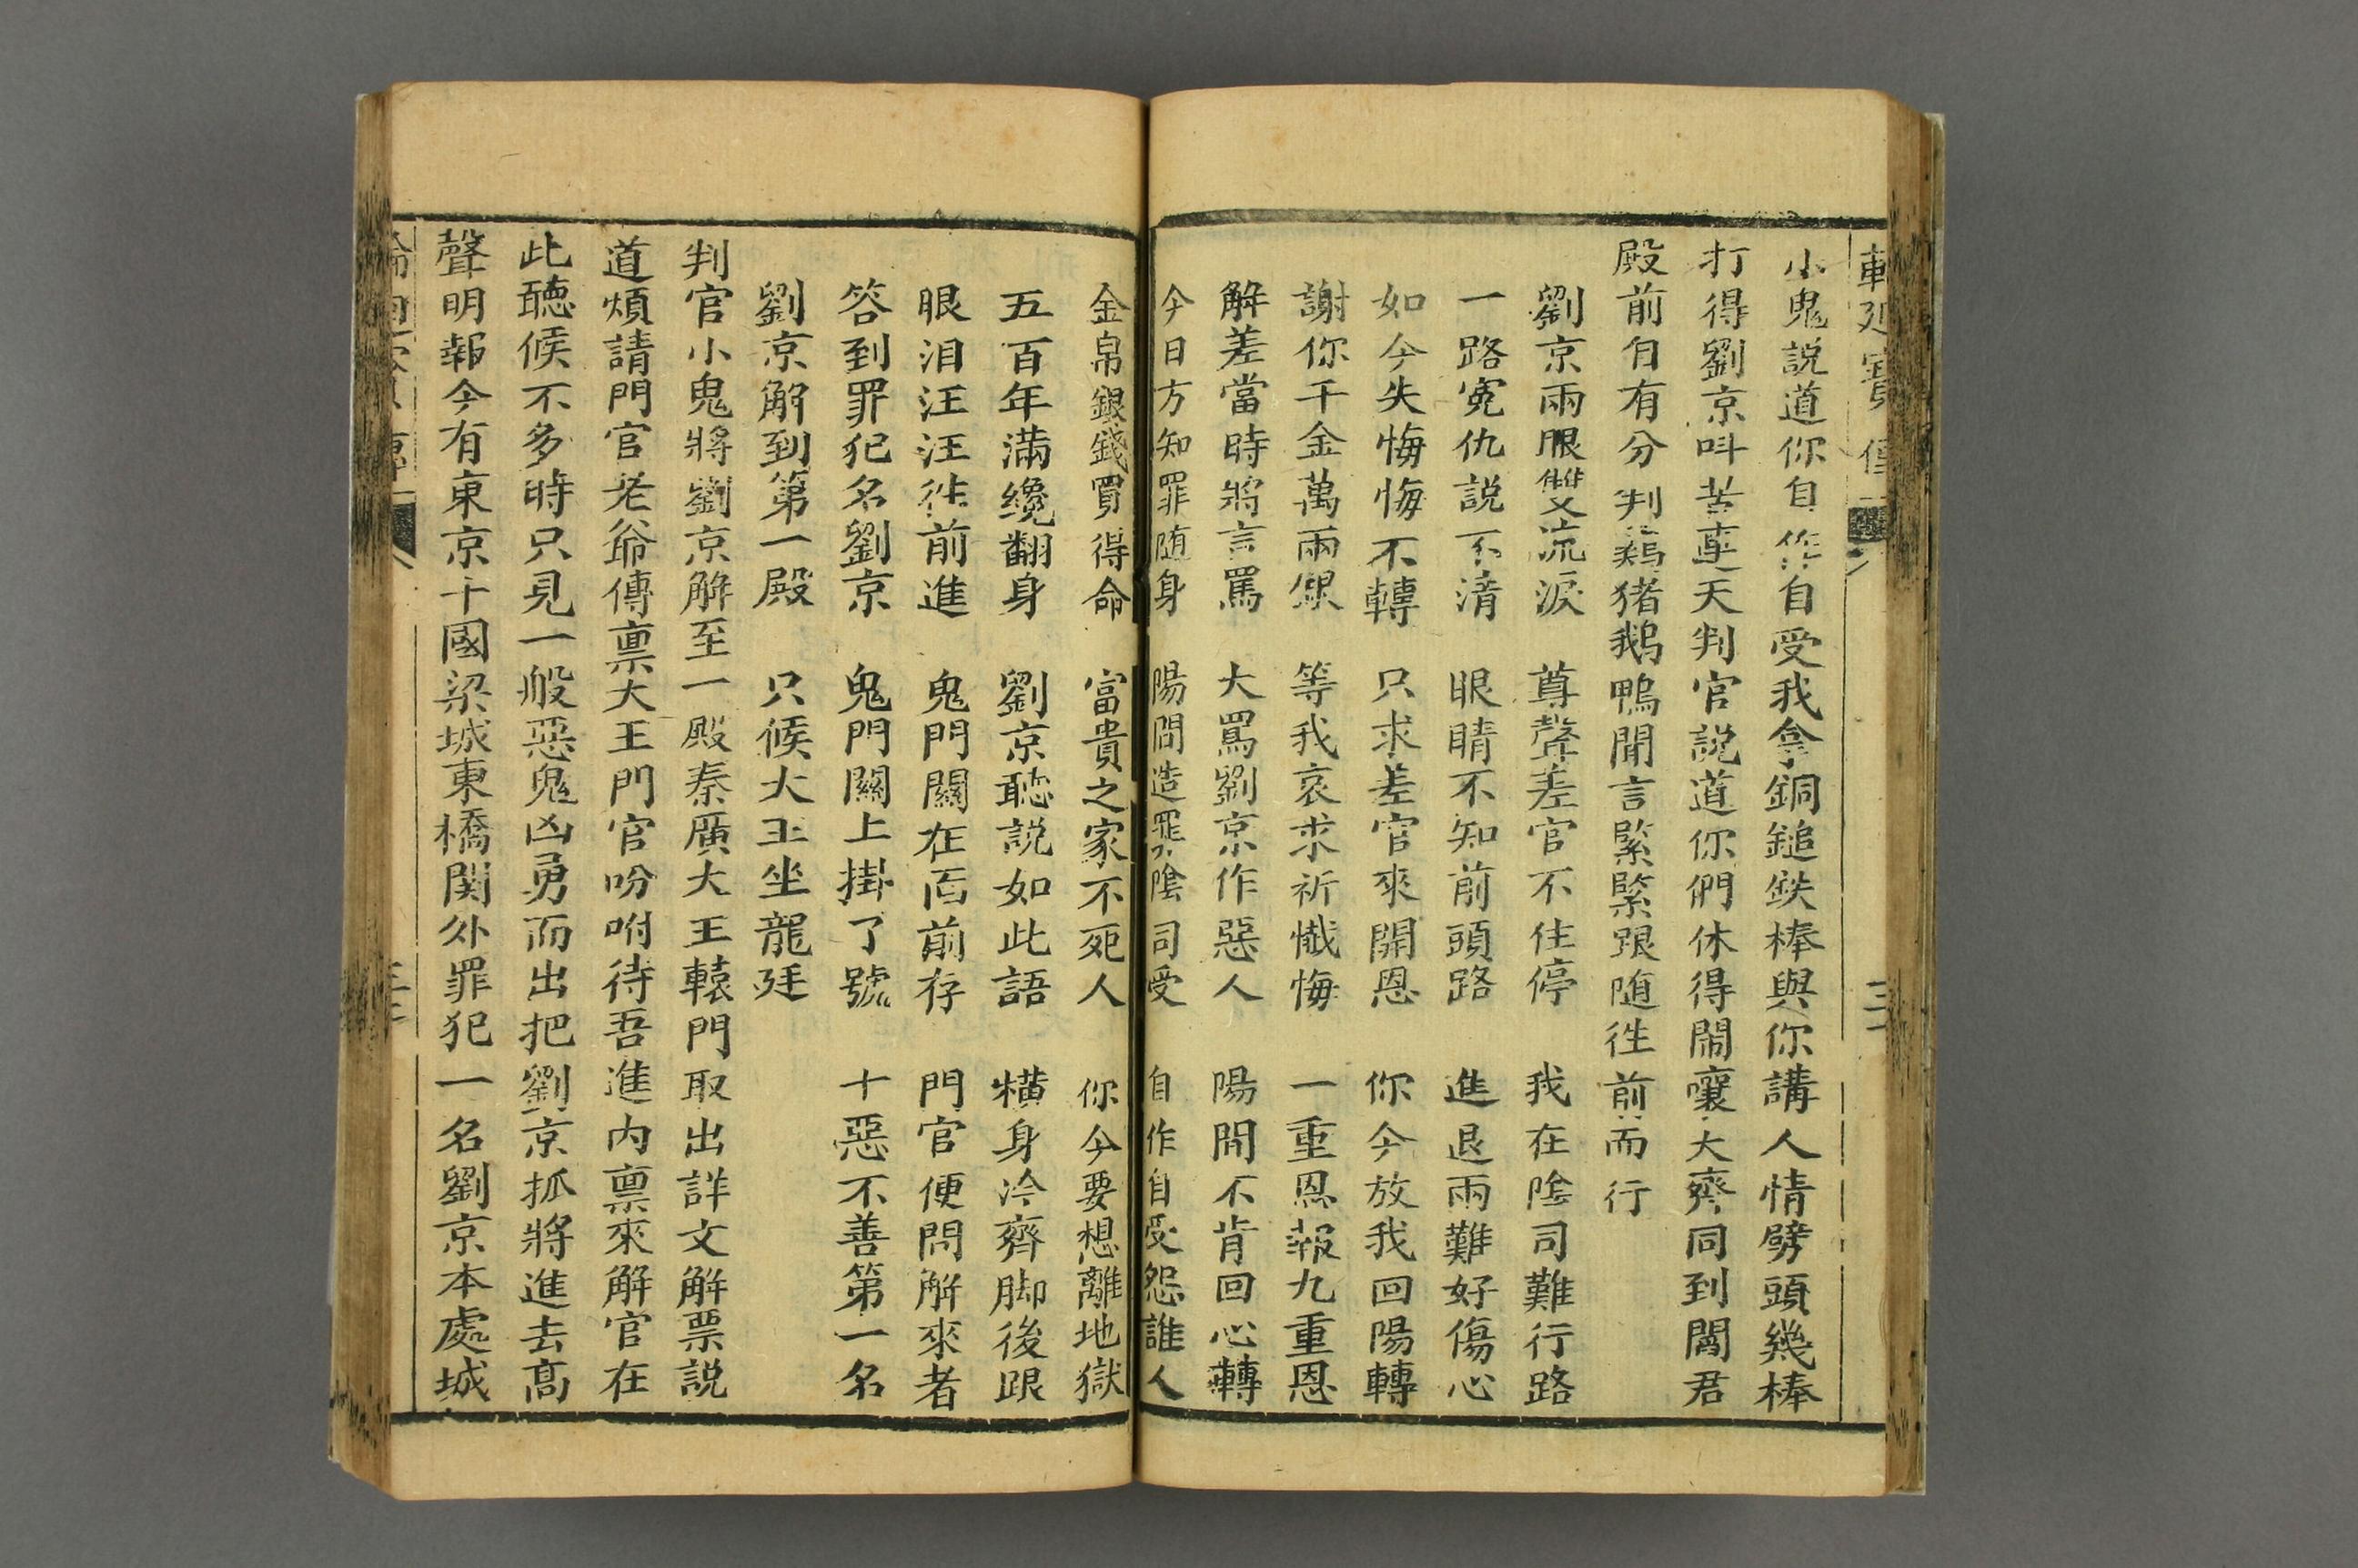 小鬼説道你自作自受我拿銅鎚鉄棒與你講人情劈頭幾棒
打得劉京呌苦連天判官説道你們休得鬧嚷大齊同到閻君
殿前自有分判鷄猪鵝鴨聞言緊緊跟随徃前而行
劉京兩眼雙流淚 尊聲差官不住停 我在隂司難行路
一路寃仇説不清 眼睛不知前頭路 進退兩難好傷心
如今失悔悔不轉 只求差官來開恩 你今放我回陽轉
謝你千金萬兩銀 等我哀求祈懺悔 一重恩報九重恩
解差當時將言罵 大罵劉京作惡人 陽間不肯回心轉
今日方知罪随身 陽間造罪隂司受 自作自受怨誰人
金帛銀錢買得命 富貴之家不死人 你今要想離地獄
五百年滿纔翻身 劉京聽説如此語 橫身冷齊脚後跟
眼泪汪汪徃前進 鬼門關在面前存 門官便問解來者
答到罪犯名劉京 鬼門關上掛了號 十惡不善第一名
劉京解到第一殿 只候大王坐龍廷
判官小鬼將劉京解至一殿秦廣大王轅門取出詳文解票説
道煩請門官老爺傳禀大王門官吩咐待吾進内禀來解官在
此聽候不多時只見一般惡鬼凶勇而出把劉京抓將進去高
聲明報今有東京十國梁城東橋関外罪犯一名劉京本處城